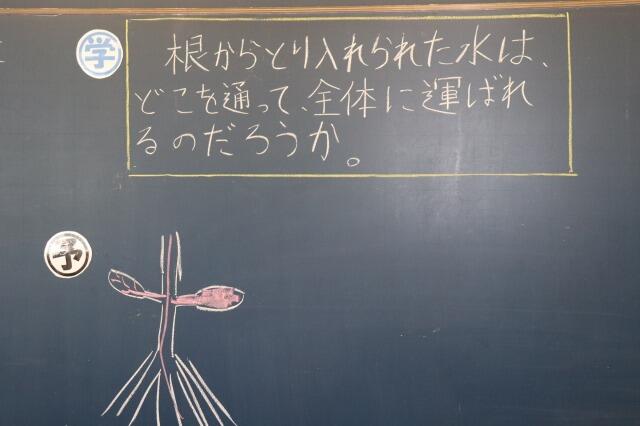 学
根からとり入れられた水は、
どこを通って、全体に運ばれ
るのだろうか。
予